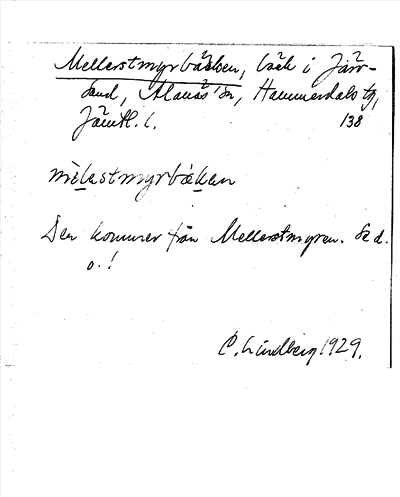 Mellerstmyrbäcken, bäck i Järv-
sand, Alanäs sn, Hammerdals tg,
Jämtl. l. 138
mèlastmyrbækan
Den kommer från Mellerstmyren. Se d.
o.!
C. Lindberg 1929.